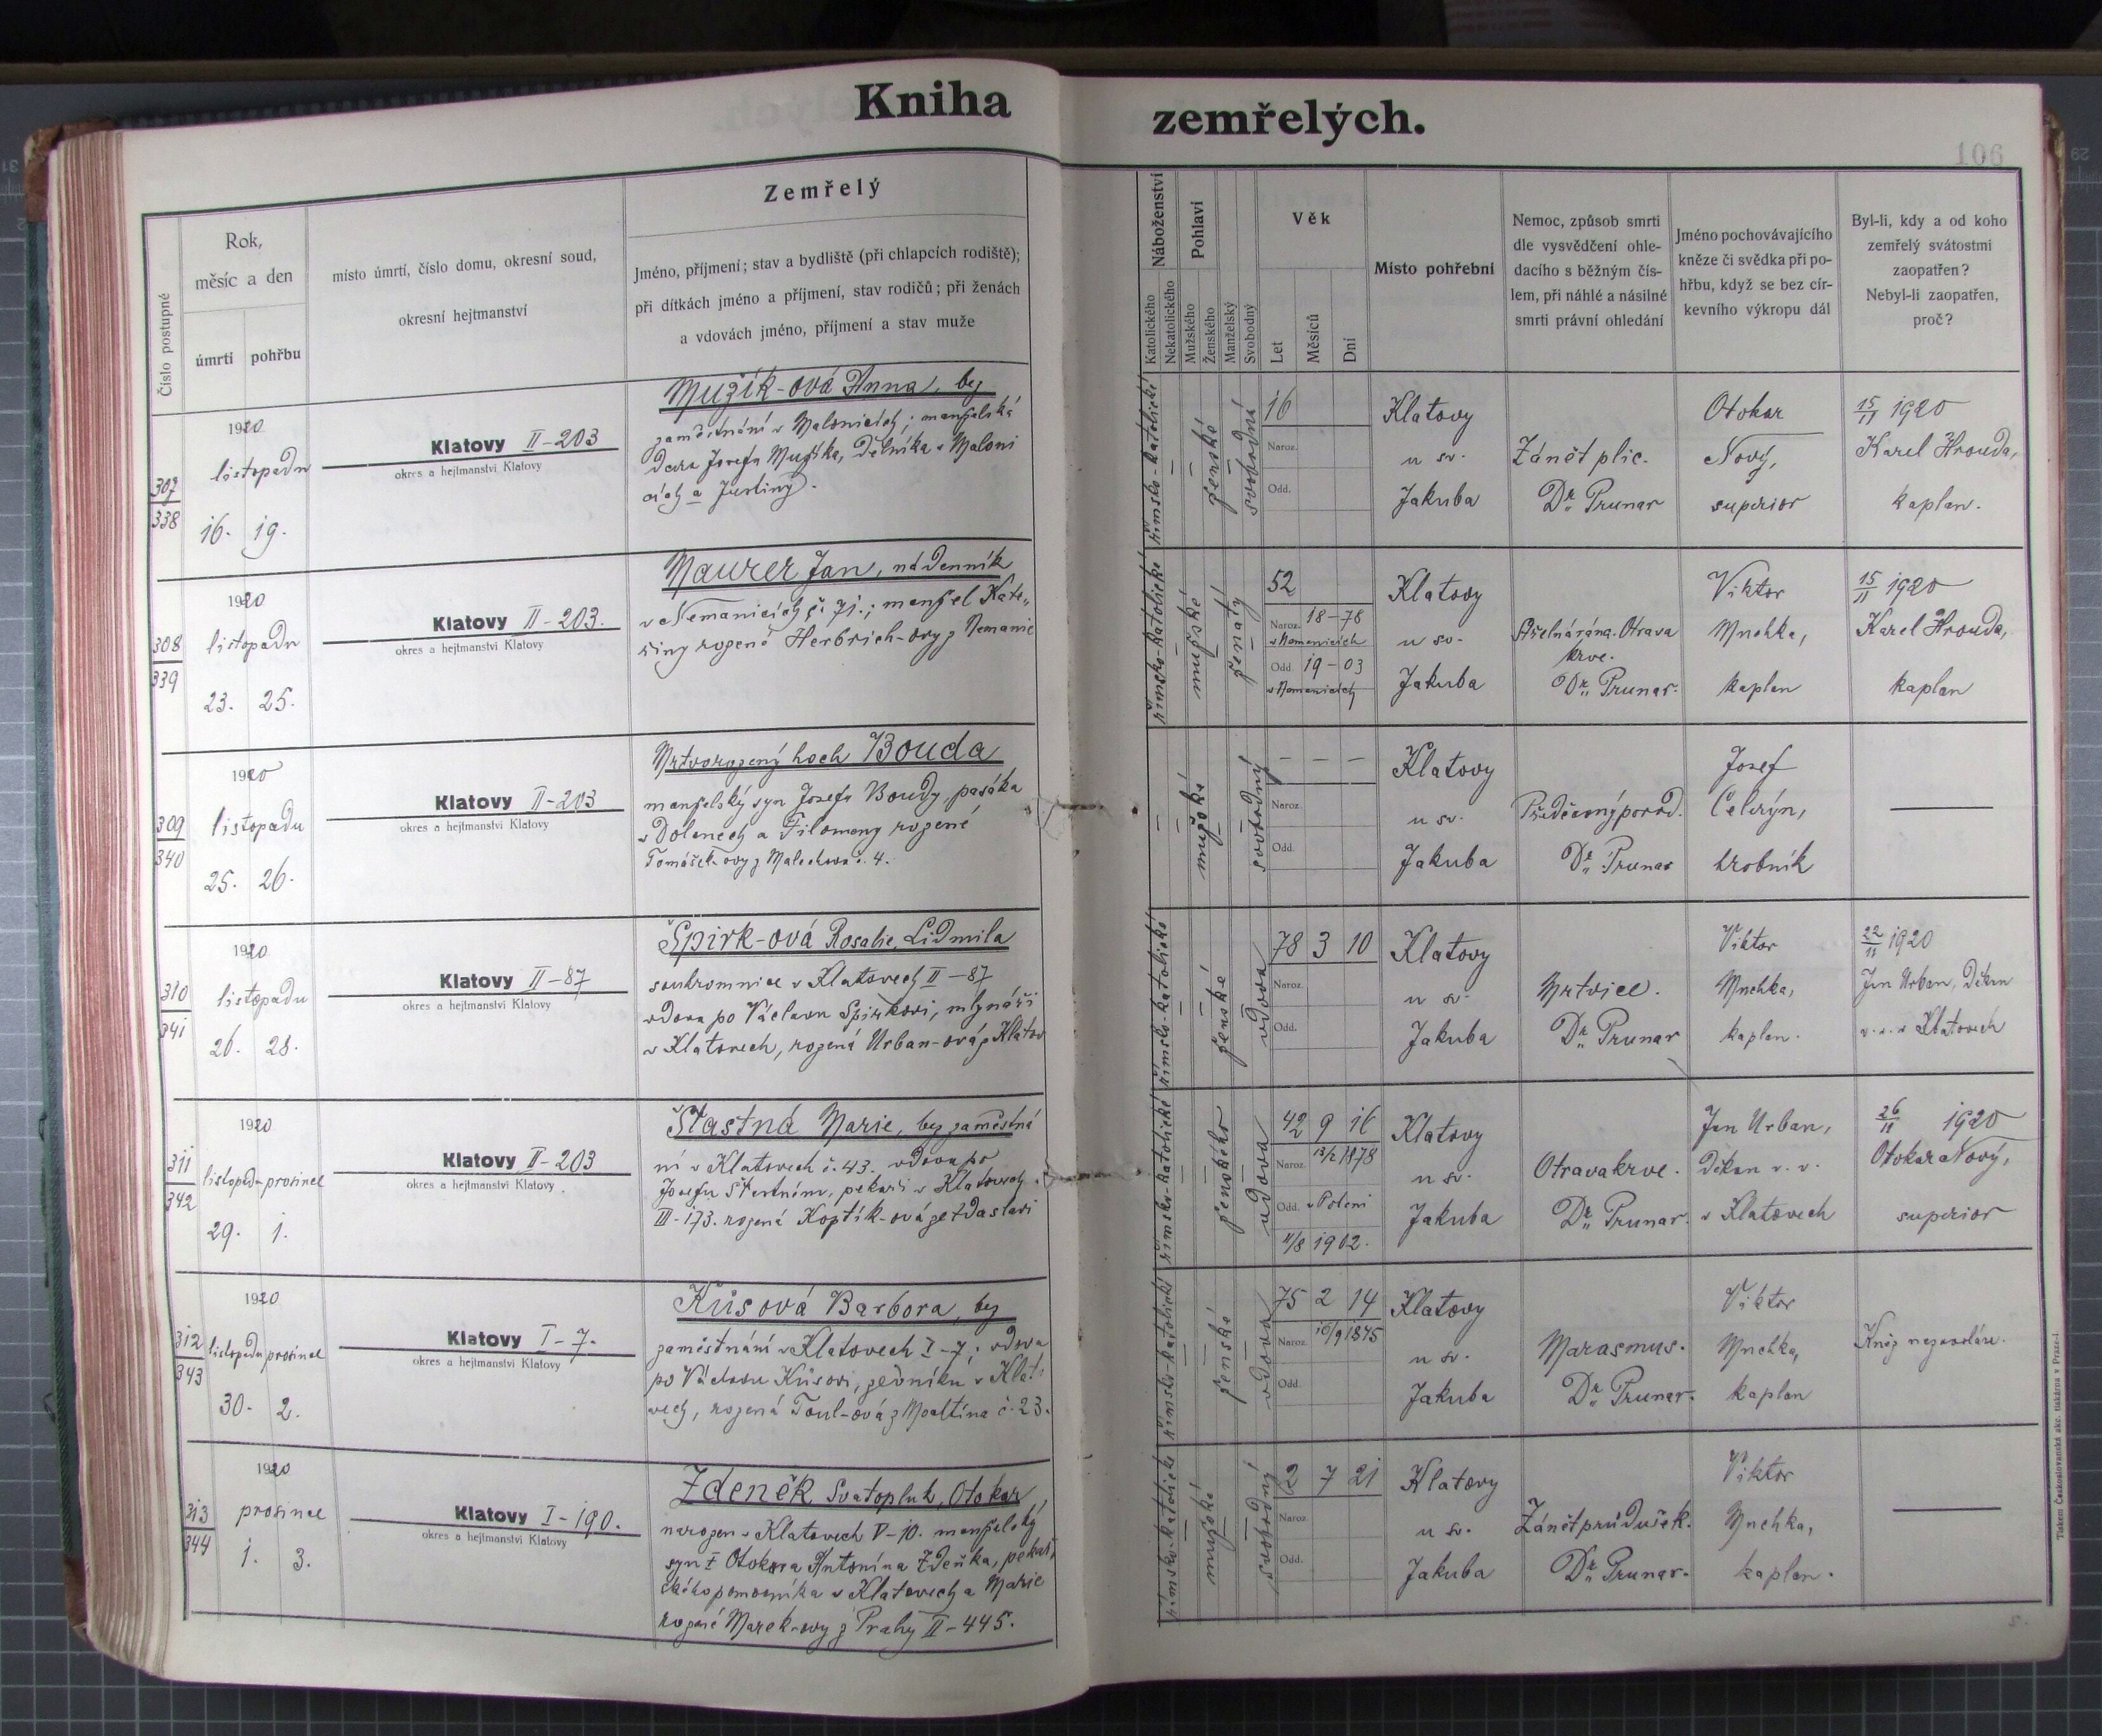 Kniha zemřelých.
106
Číslo postupné
Rok,
měsíc a den
úmrtí pohřbu
místo úmrtí, číslo domu, okresní soud,
okresní hejtmanství
Zemřelý
Jméno, příjmení; stav a bydliště (při chlapcích rodiště);
při dítkách jméno a příjmení, stav rodičů; při ženách
a vdovách jméno, příjmení a stav muže
Náboženství
Katolického
Nekatolického
Pohlaví
Mužského
Ženského
Manželský
Svobodný
Věk
Let
Měsíců
Dní
Místo pohřební
Nemoc, způsob smrti
dle vysvědčení ohle-
dacího s běžným čís-
lem, při náhlé a násilné
smrti právní ohledání
Jméno pochovávajícího
kněze či svědka při po-
hřbu, když se bez cír-
kevního výkropu dál
Byl-li, kdy a od koho
zemřelý svátostmi
zaopatřen?
Nebyl-li zaopatřen,
proč?
307
338
1920
listopadu
16. 19.
Klatovy II-203
okres a hejtmanství Klatovy
Mužík-ová Anna, bez
zaměstnání v Malonicích; manželská
dcera Josefa Mužíka, dělníka v Maloni
cích a Justiny.
římsko-katolické
ženské
svobodná
16
Naroz.
Odd.
Klatovy
u sv.
Jakuba
Zánět plic.
Dr. Prunar
Otokar
Nový,
superior
15/11 1920
Karel Hrouda,
kaplan.
308
339
1920
listopadu
23. 25.
Klatovy II-203.
okres a hejtmanství Klatovy
Maurer Jan, nádenník
v Nemanicích č. 71.; manžel Kate-
řiny rozené Herbrich-ovy z Nemanic
římsko-katolické
mužské
ženatý
52
Naroz. 18-78
v Nemanicích
Odd. 19-03
v Nemanicích
Klatovy
u sv.
Jakuba
Střelná rána. Otrava
krve.
Dr. Prunar.
Viktor
Mnehka,
kaplan
15/11 1920
Karel Hrouda,
kaplan
309
340
1920
listopadu
25. 26.
Klatovy II-203
okres a hejtmanství Klatovy
Mrtvorozený hoch Bouda
manželský syn Josefa Boudy, pasáka
v Dolanech a Filomeny rozené
Tomášek-ovy z Malechova č. 4.
mužské
svobodný
- - -
Naroz.
Odd.
Klatovy
u sv.
Jakuba
Předčasný porod.
Dr. Prunar
Josef
Čelerýn,
hrobník
310
341
1920
listopadu
26. 28.
Klatovy II-87
okres a hejtmanství Klatovy
Špirk-ová Rosalie, Lidmila
soukromnice v Klatovech II-87
vdova po Václavu Špirkovi, mlynáři
v Klatovech, rozená Urban-ová z Klatov
římsko-katolické
ženské
vdova
78 3 10
Naroz.
Odd.
Klatovy
u sv.
Jakuba
Mrtvice.
Dr. Prunar
Viktor
Mnehka,
kaplan.
22/11 1920
Jan Urban, děkan
v. v. v Klatovech
311
342
1920
listopadu prosince
29. 1.
Klatovy II-203
okres a hejtmanství Klatovy
Šťastná Marie, bez zaměstná
ní v Klatovech č. 43. vdova po
Josefu Šťastném, pekaři v Klatovech
III-173. rozená Koptík-ová ze Zdaslavi
římsko-katolické
ženského
vdova
42 9 16
Naroz. 13/2 1878
v Poleni
Odd.
11/8 1902.
Klatovy
u sv.
Jakuba
Otrava krve.
Dr. Prunar.
Jan Urban,
děkan v. v.
v Klatovech
26/11 1920
Otokar Nový,
superior
312
343
1920
listopadu prosince
30. 2.
Klatovy I-7.
okres a hejtmanství Klatovy
Kůsová Barbora, bez
zaměstnání v Klatovech I-7; vdova
po Václavu Kůsovi, zedníku v Klato
vech, rozená Toul-ová z Mochtína č. 23.
římsko-katolické
ženské
vdova
75 2 14
Naroz. 16/9 1845
Odd.
Klatovy
u sv.
Jakuba
Marasmus.
Dr. Prunar.
Viktor
Mnehka,
kaplan
Kněz nezavolán.
313
344
1920
prosince
1. 3.
Klatovy I-190.
okres a hejtmanství Klatovy
Zdeněk Svatopluk, Otokar
narozen v Klatovech V-10. manželský
syn Otokara Antonína Zdeňka, pekař
ského pomocníka v Klatovech a Marie
rozené Marek-ovy z Prahy II-445.
římsko-katolické
mužské
svobodný
2 7 21
Naroz.
Odd.
Klatovy
u sv.
Jakuba
Zánět průdušek.
Dr. Prunar.
Viktor
Mnehka,
kaplan.
Tiskem Českoslovanská akc. tiskárna v Praze-I.